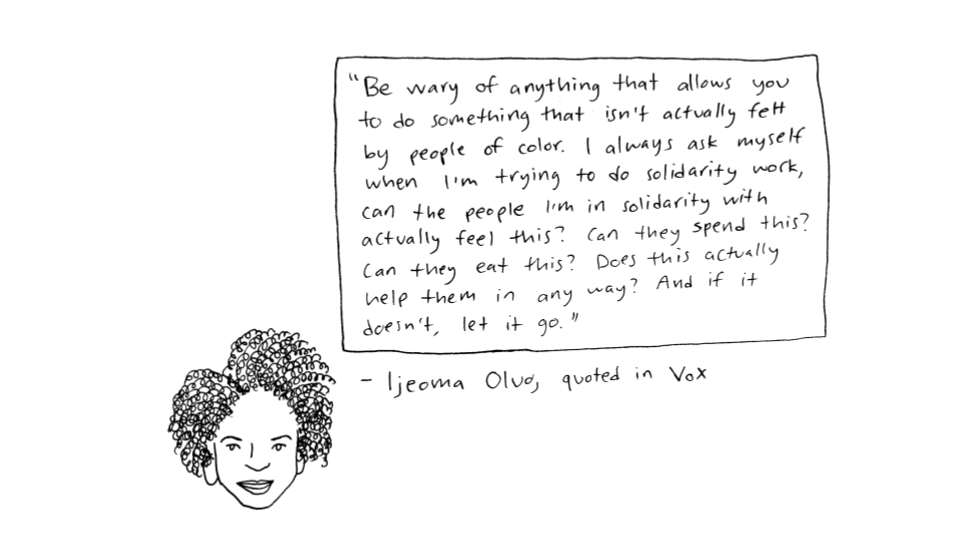 "Be wary of anything that allows you
to do something that isn't actually felt
by people of color. I always ask myself
when I'm trying to do solidarity work,
can the people I'm in solidarity with
actually feel this? Can they spend this?
Can they eat this? Does this actually
help them in any way? And if it
doesn't, let it go."
- Ijeoma Oluo, quoted in Vox